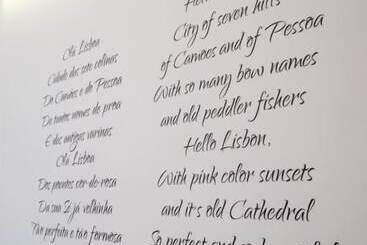 Olá Lisboa
Cidade das sete colinas
De Camões e de Pessoa
De tantos nomes de proa
E das antigas varinas
Olá Lisboa
Dos poentes cor-de-rosa
Da sua Sé já velhinha
Tão perfeita e tão formosa
City of seven hills
of Camoes and of Pessoa
With so many bow names
and old peddler fishers
Hello Lisbon,
With pink color sunsets
and it's old Cathedral
So perfect and